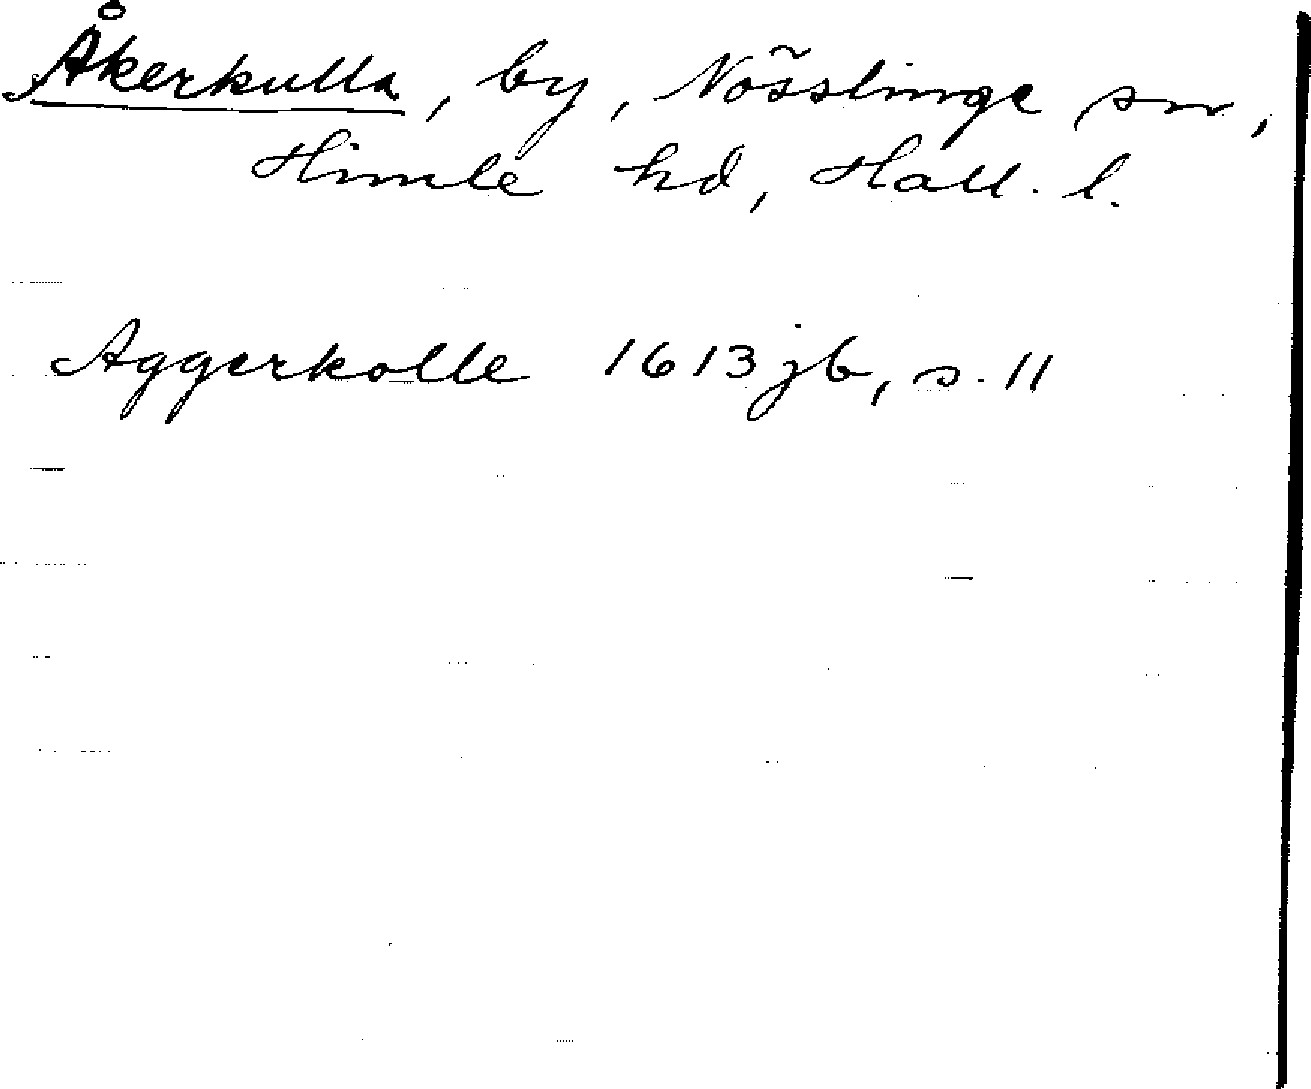 Åkerkulla, by, Nösslinge sn,
Himle hd, Hall. l.
Aggerkolle 1613 jb, s. 11